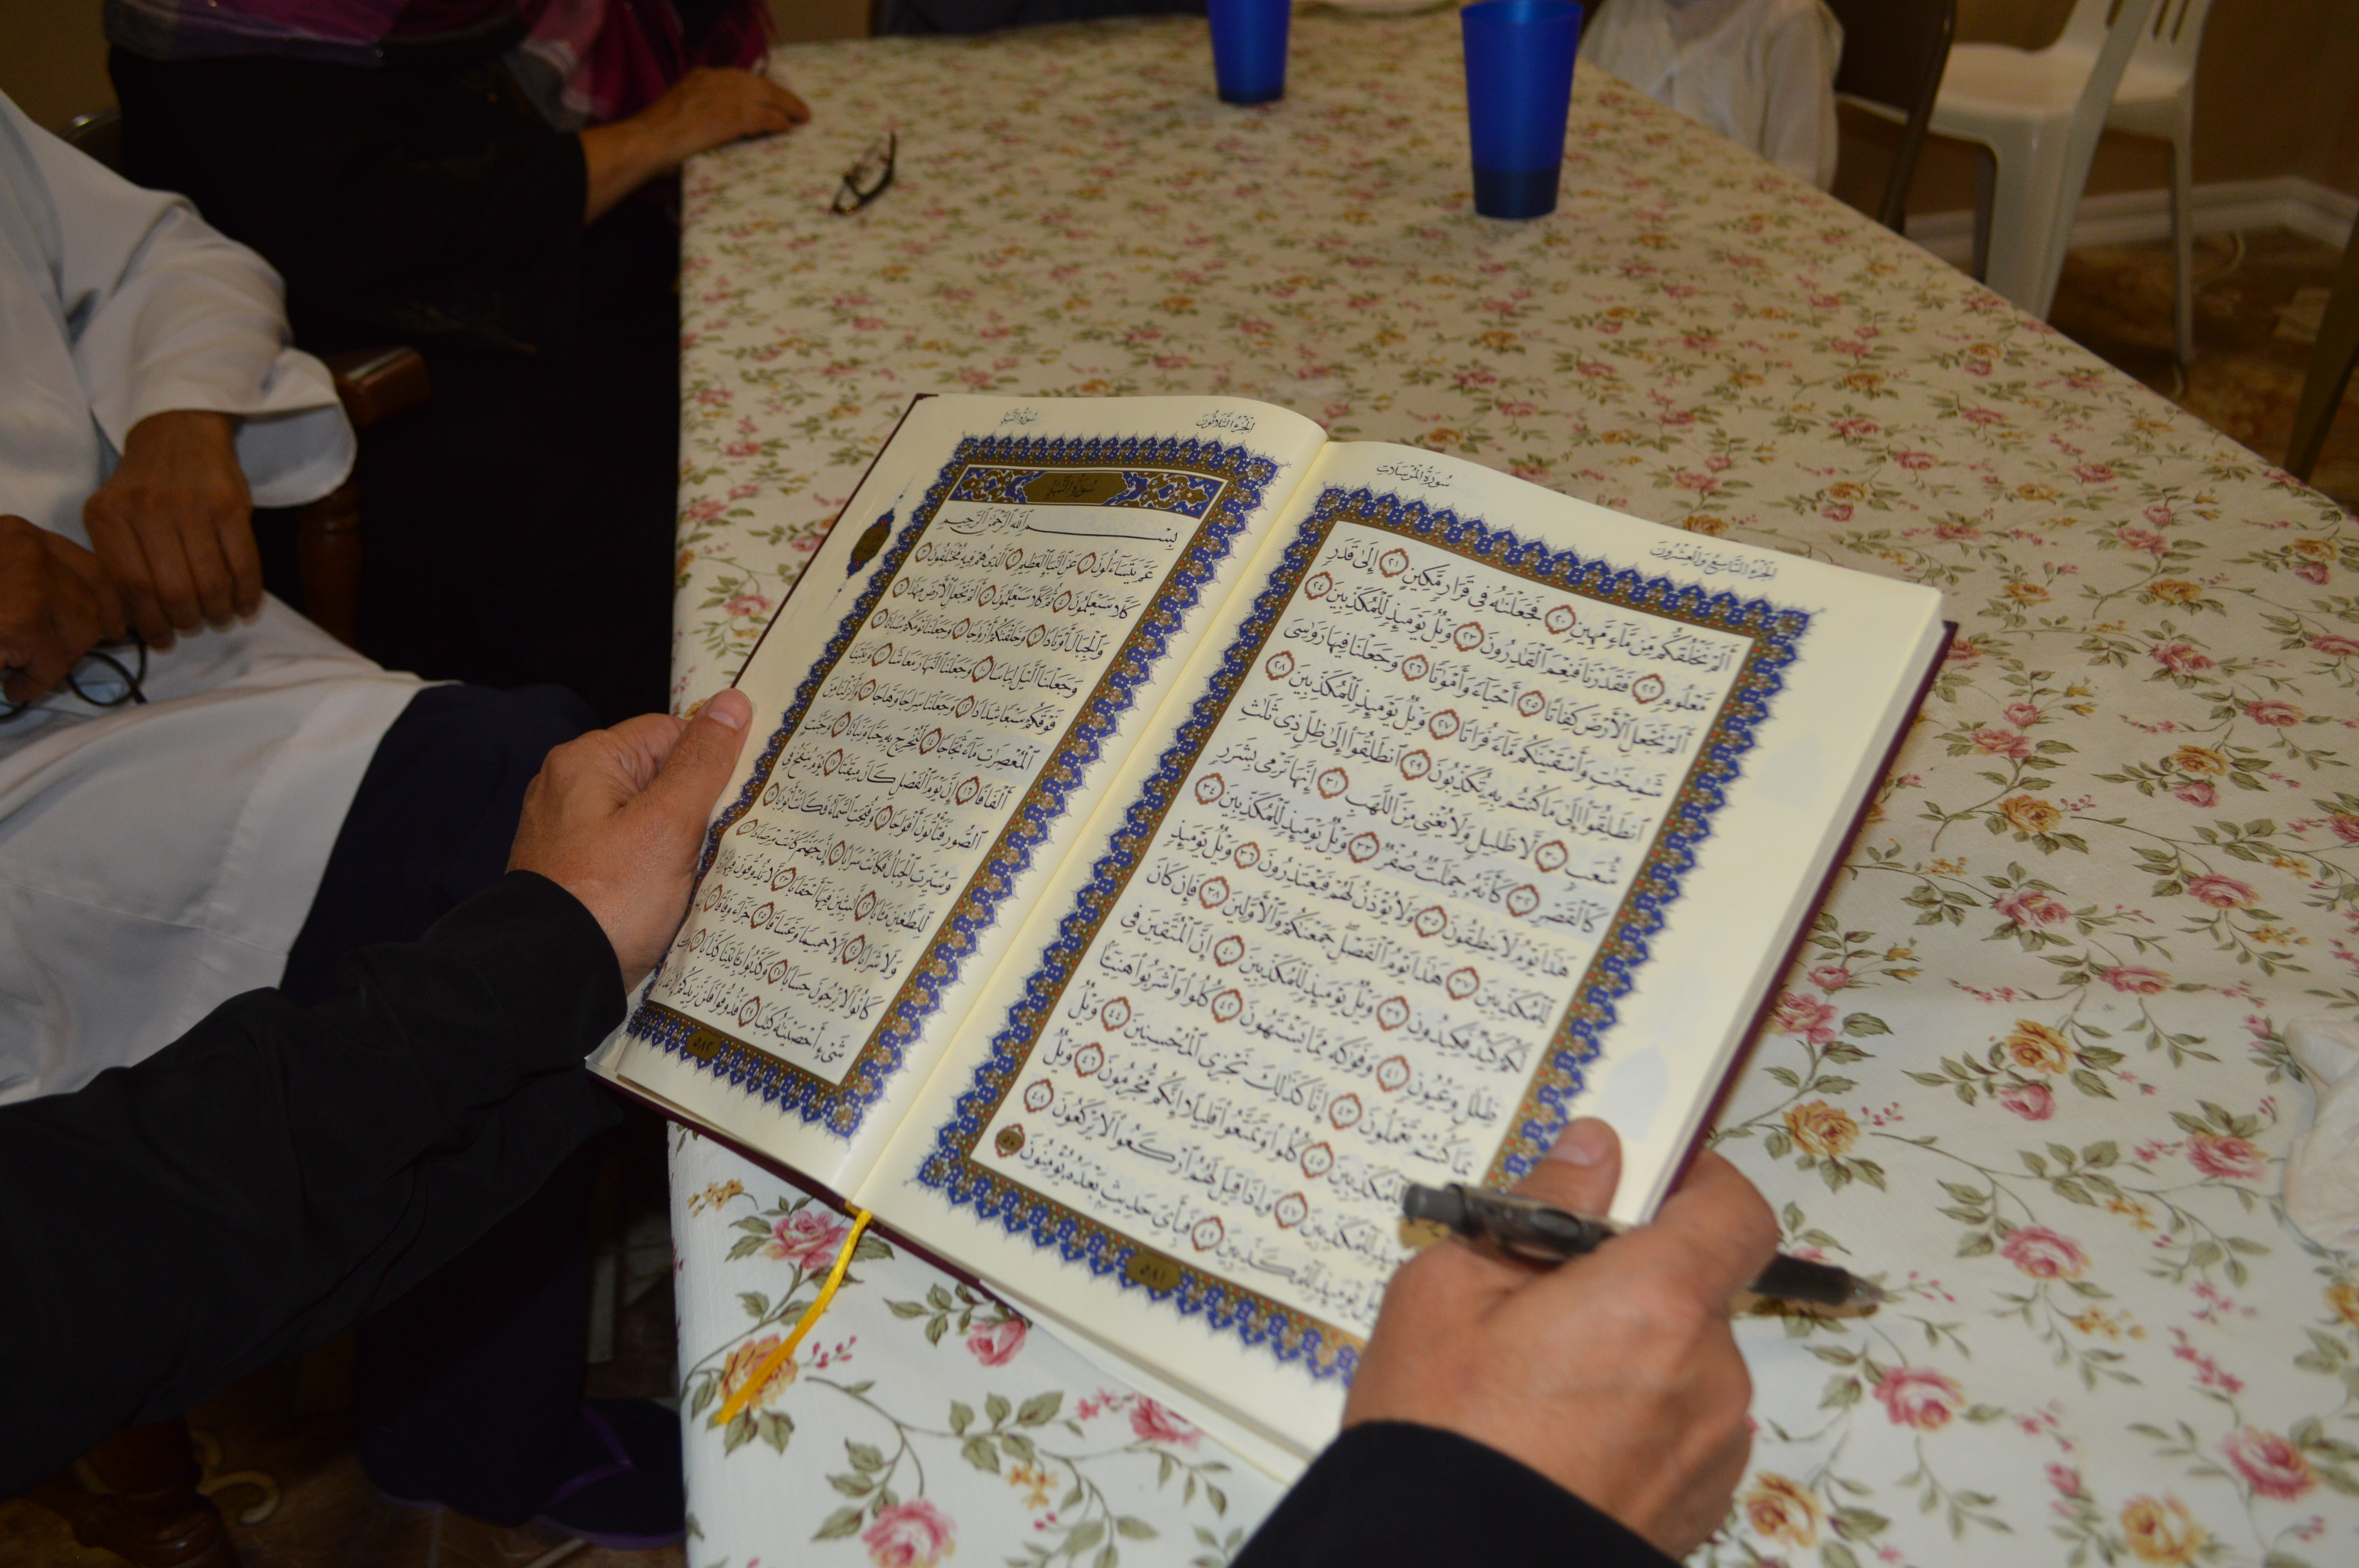 الجزء التاسع والعشرون
سورة المرسلات
أَلَمْ نَخْلُقكُّم مِّن مَّآءٍ مَّهِينٍ ٢٠ فَجَعَلْنَٰهُ فِى قَرَارٍ مَّكِينٍ ٢١ إِلَىٰ قَدَرٍ
مَّعْلُومٍ ٢٢ فَقَدَرْنَا فَنِعْمَ ٱلْقَٰدِرُونَ ٢٣ وَيْلٌ يَوْمَئِذٍ لِّلْمُكَذِّبِينَ ٢٤
أَلَمْ نَجْعَلِ ٱلْأَرْضَ كِفَاتًا ٢٥ أَحْيَآءً وَأَمْوَٰتًا ٢٦ وَجَعَلْنَا فِيهَا رَوَٰسِىَ
شَٰمِخَٰتٍ وَأَسْقَيْنَٰكُم مَّآءً فُرَاتًا ٢٧ وَيْلٌ يَوْمَئِذٍ لِّلْمُكَذِّبِينَ ٢٨
ٱنطَلِقُوٓا۟ إِلَىٰ مَا كُنتُم بِهِۦ تُكَذِّبُونَ ٢٩ ٱنطَلِقُوٓا۟ إِلَىٰ ظِلٍّ ذِى ثَلَٰثِ
شُعَبٍ ٣٠ لَّا ظَلِيلٍ وَلَا يُغْنِى مِنَ ٱللَّهَبِ ٣١ إِنَّهَا تَرْمِى بِشَرَرٍ
كَٱلْقَصْرِ ٣٢ كَأَنَّهُۥ جِمَٰلَتٌ صُفْرٌ ٣٣ وَيْلٌ يَوْمَئِذٍ لِّلْمُكَذِّبِينَ ٣٤
هَٰذَا يَوْمُ لَا يَنطِقُونَ ٣٥ وَلَا يُؤْذَنُ لَهُمْ فَيَعْتَذِرُونَ ٣٦ وَيْلٌ يَوْمَئِذٍ
لِّلْمُكَذِّبِينَ ٣٧ هَٰذَا يَوْمُ ٱلْفَصْلِ جَمَعْنَٰكُمْ وَٱلْأَوَّلِينَ ٣٨ فَإِن كَانَ
لَكُمْ كَيْدٌ فَكِيدُونِ ٣٩ وَيْلٌ يَوْمَئِذٍ لِّلْمُكَذِّبِينَ ٤٠ إِنَّ ٱلْمُتَّقِينَ فِى
ظِلَٰلٍ وَعُيُونٍ ٤١ وَفَوَٰكِهَ مِمَّا يَشْتَهُونَ ٤٢ كُلُوا۟ وَٱشْرَبُوا۟ هَنِيٓـًٔۢا
بِمَا كُنتُمْ تَعْمَلُونَ ٤٣ إِنَّا كَذَٰلِكَ نَجْزِى ٱلْمُحْسِنِينَ ٤٤ وَيْلٌ
لِّلْمُكَذِّبِينَ ٤٥ كُلُوا۟ وَتَمَتَّعُوا۟ قَلِيلًا إِنَّكُم مُّجْرِمُونَ ٤٦ وَيْلٌ
لِّلْمُكَذِّبِينَ ٤٧ وَإِذَا قِيلَ لَهُمُ ٱرْكَعُوا۟ لَا يَرْكَعُونَ ٤٨
وَيْلٌ يَوْمَئِذٍ لِّلْمُكَذِّبِينَ ٤٩ فَبِأَىِّ حَدِيثٍۭ بَعْدَهُۥ يُؤْمِنُونَ ٥٠
٥٨١
الجزء الثلاثون
سورة النبإ
سورة النبإ
بِسْمِ ٱللَّهِ ٱلرَّحْمَٰنِ ٱلرَّحِيمِ
عَمَّ يَتَسَآءَلُونَ ١ عَنِ ٱلنَّبَإِ ٱلْعَظِيمِ ٢ ٱلَّذِى هُمْ فِيهِ مُخْتَلِفُونَ ٣
كَلَّا سَيَعْلَمُونَ ٤ ثُمَّ كَلَّا سَيَعْلَمُونَ ٥ أَلَمْ نَجْعَلِ ٱلْأَرْضَ مِهَٰدًا ٦
وَٱلْجِبَالَ أَوْتَادًا ٧ وَخَلَقْنَٰكُمْ أَزْوَٰجًا ٨ وَجَعَلْنَا نَوْمَكُمْ سُبَاتًا ٩
وَجَعَلْنَا ٱلَّيْلَ لِبَاسًا ١٠ وَجَعَلْنَا ٱلنَّهَارَ مَعَاشًا ١١ وَبَنَيْنَا
فَوْقَكُمْ سَبْعًا شِدَادًا ١٢ وَجَعَلْنَا سِرَاجًا وَهَّاجًا ١٣ وَأَنزَلْنَا مِنَ
ٱلْمُعْصِرَٰتِ مَآءً ثَجَّاجًا ١٤ لِّنُخْرِجَ بِهِۦ حَبًّا وَنَبَاتًا ١٥ وَجَنَّٰتٍ
أَلْفَافًا ١٦ إِنَّ يَوْمَ ٱلْفَصْلِ كَانَ مِيقَٰتًا ١٧ يَوْمَ يُنفَخُ فِى
ٱلصُّورِ فَتَأْتُونَ أَفْوَاجًا ١٨ وَفُتِحَتِ ٱلسَّمَآءُ فَكَانَتْ أَبْوَٰبًا ١٩
وَسُيِّرَتِ ٱلْجِبَالُ فَكَانَتْ سَرَابًا ٢٠ إِنَّ جَهَنَّمَ كَانَتْ مِرْصَادًا ٢١
لِّلطَّٰغِينَ مَـَٔابًا ٢٢ لَّٰبِثِينَ فِيهَآ أَحْقَابًا ٢٣ لَّا يَذُوقُونَ فِيهَا
وَلَا شَرَابًا ٢٤ إِلَّا حَمِيمًا وَغَسَّاقًا ٢٥ جَزَآءً وِفَاقًا ٢٦
كَانُوا۟ لَا يَرْجُونَ حِسَابًا ٢٧ وَكَذَّبُوا۟ بِـَٔايَٰتِنَا كِذَّابًا ٢٨
شَىْءٍ أَحْصَيْنَٰهُ كِتَٰبًا ٢٩ فَذُوقُوا۟ فَلَن نَّزِيدَكُمْ إِلَّا
٥٨٢